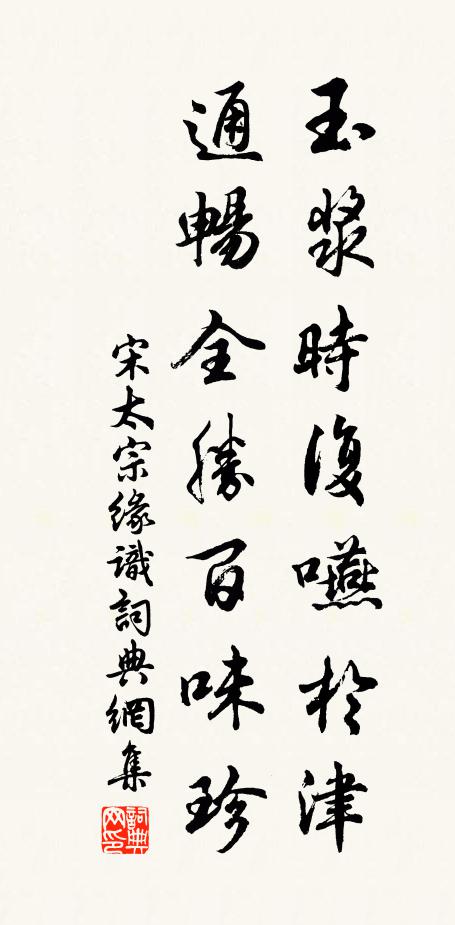 玉漿時復嚥於津
通暢全勝百味珍
宋太宗緣識詞典網集
詞典網印